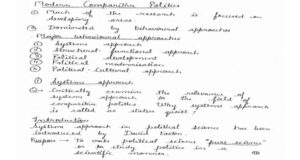 Modern Comparative Politics
① Much of the research is focused on developing areas
② Dominated by behavioural approaches
Major behavioural approaches
① Systems approach
② Structural functional approach
③ Political development
④ Political modernisation
⑤ Political-cultural approach
① Systems approach
Q- Critically examine the relevance of
systems approach to the field of
comparative politics. Why systems approach
is called as status quoist?
Introduction
Systems approach in political science has been
introduced by David Easton.
Purpose - To make political science "pure science"
or to study politics in a
scientific manner.